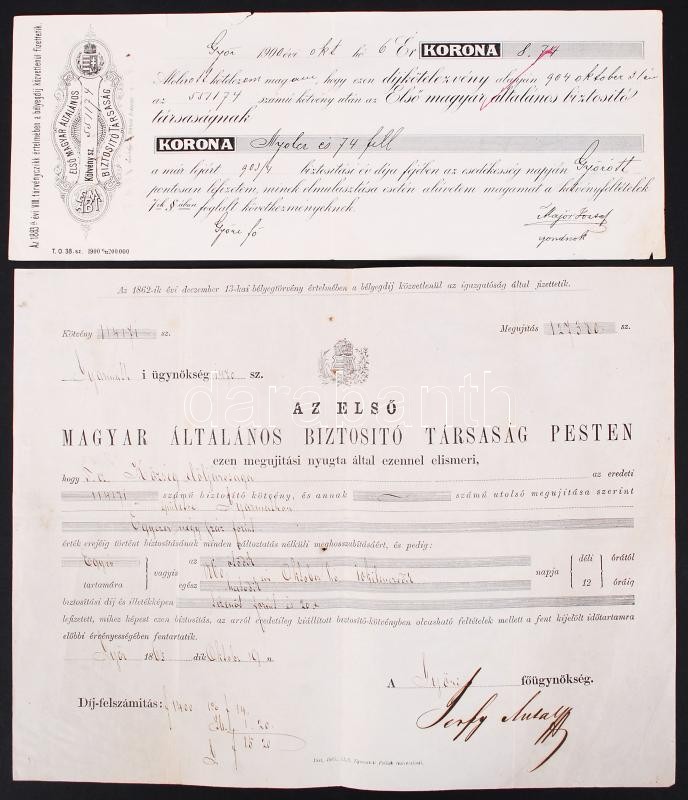 Az 1883-ik évi VIII. törvényczikk értelmében a bélyegdíj közvetlenül fizettetik.
ELSŐ MAGYAR ÁLTALÁNOS
Kötvény sz. 551174
BIZTOSÍTÓ TÁRSASÁG
T. O. 38. sz. 1900
Győr 1900 évi okt hó 6 Ért KORONA 8.74
hogy ezen díjkötelezvény alapján 904 október 31
az 551174 számú kötvény után az Első magyar általános biztosító
társaságnak
KORONA Nyolcz és 74 fill
a már lejárt 903/4 biztosítási év díja fejében az esedékesség napján Győrött
pontosan lefizetem, minek elmulasztása esetén alávetem magamat a kötvényfeltételek
7ik § ában foglalt következményeknek.
Major József
gondnok
Az 1862-ik évi deczember 13-kai bélyegtörvény értelmében a bélyegdíj közvetlenül az igazgatóság által fizettetik.
Kötvény 114171 sz.
Megujitás 127320 sz.
i ügynökség 420 sz.
darabanth
AZ ELSŐ
MAGYAR ÁLTALÁNOS BIZTOSITÓ TÁRSASÁG PESTEN
ezen megujitási nyugta által ezennel elismeri,
hogy Község Elöljárósága az eredeti
114171 számú biztosító kötvény, és annak számú utolsó megujitása szerint
Egyezer négy száz forint
érték erejéig történt biztosításának minden változtatás nélküli meghosszabításáért, és pedig:
Egy év tartamára vagyis az egész Október napja déli 12 órától óráig
biztosítási díj és illetékképen forint és 20 x
lefizetett, mihez képest ezen biztosítás, az arról eredetileg kiállított biztosító-kötvényben olvasható feltételek mellett a fent kijelölt időtartamra
előbbi érvényességében fentartatik.
Győr 1865 dik Október 19 n
A Győri főügynökség.
Díj-felszámitás: f 1400 f 14.
1.20.
f 15.20